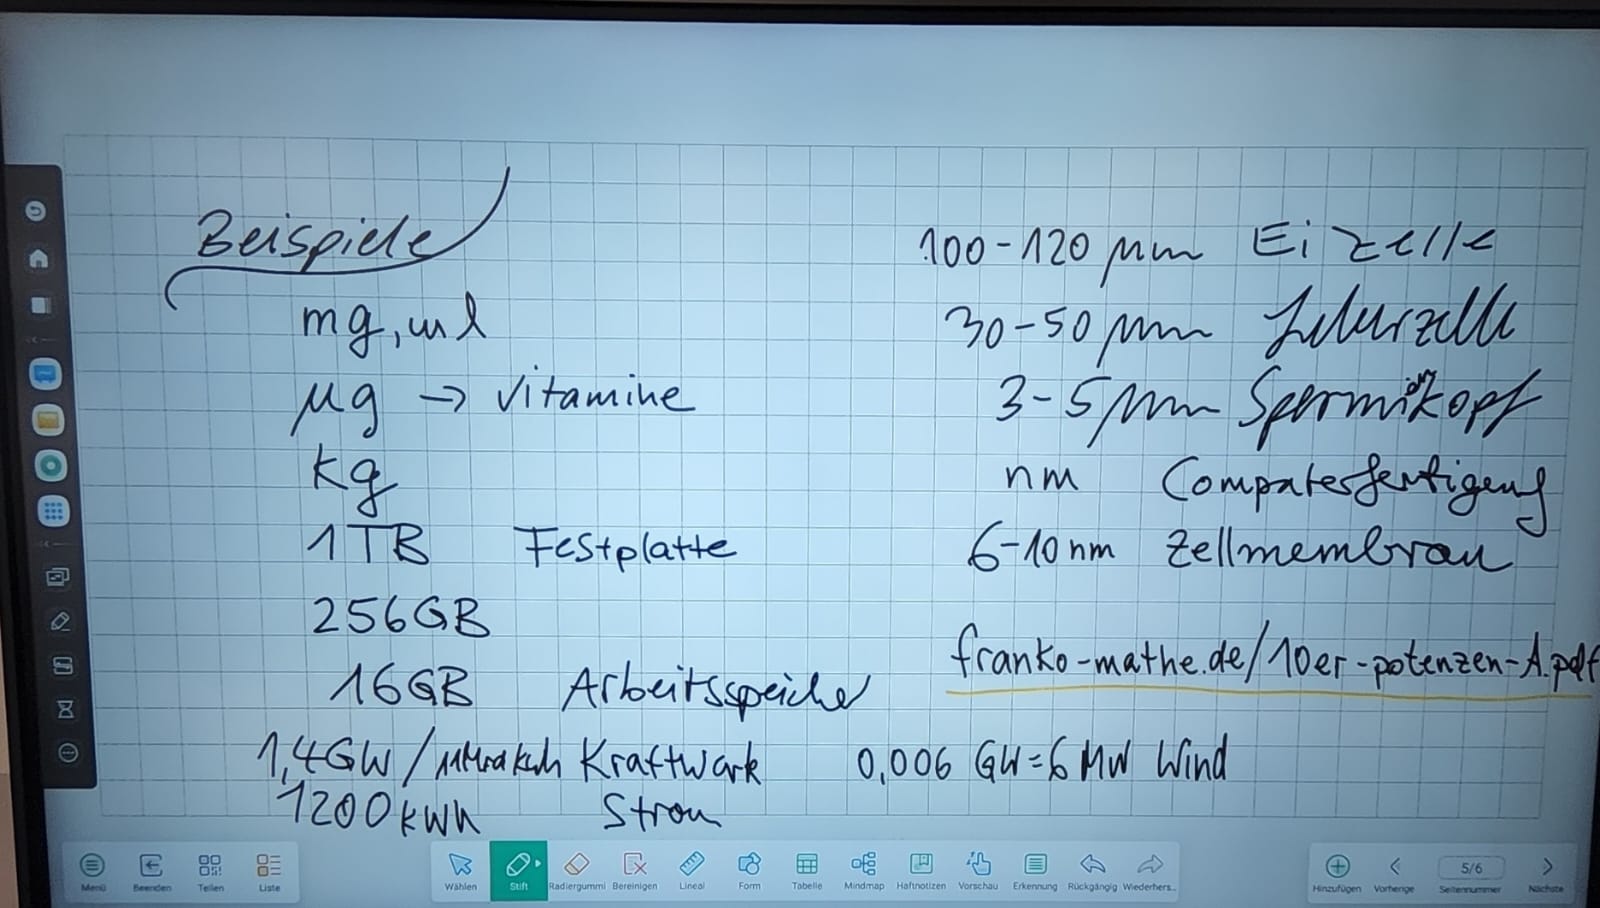 Beispiele
mg, ml
µg → Vitamine
kg
1TB Festplatte
256GB
16GB Arbeitsspeicher
1,4GW / kWh Kraftwerk
1200kWh Strom
100-120 µm Eizelle
30-50 µm Leberzelle
3-5 µm Spermikopf
nm Computerfertigung
6-10 nm Zellmembran
franko-mathe.de/10er-potenzen-A.pdf
0,006 GW = 6 MW Wind
Menü Beenden Teilen Liste
Wählen Stift Radiergummi Bereinigen Lineal Form Tabelle Mindmap Haftnotizen Vorschau Erkennung Rückgängig Wiederhers...
5/6
Hinzufügen Vorherige Seitennummer Nächste